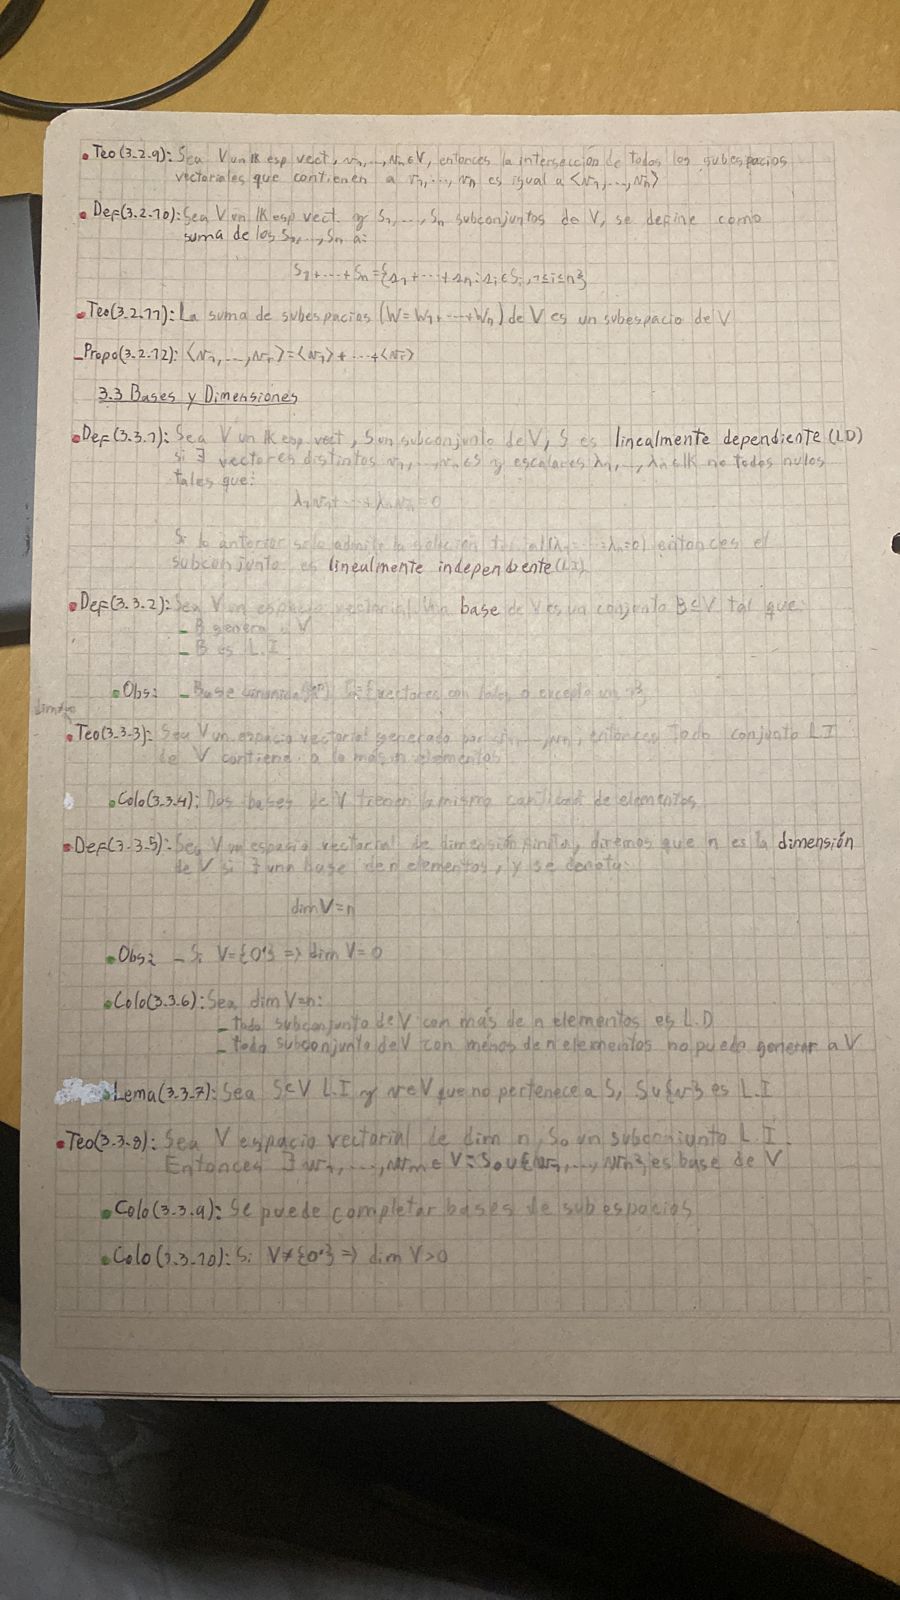 Teo(3.2.9): Sea V un IK esp vect, v₁,...,vₙ ∈ V, entonces la intersección de todos los subespacios
vectoriales que contienen a v₁,...,vₙ es igual a <v₁,...,vₙ>
Def(3.2.10): Sea V un IK esp vect. y S₁,...,Sₙ subconjuntos de V, se define como
suma de los S₁,...,Sₙ a:
S₁+...+Sₙ={s₁+...+sₙ:sᵢ∈Sᵢ,1≤i≤n}
Teo(3.2.11): La suma de subespacios (W=W₁+...+Wₙ) de V es un subespacio de V
Propo(3.2.12): <v₁,...,vᵣ>=<v₁>+...+<vᵣ>
3.3 Bases y Dimensiones
Def(3.3.1): Sea V un IK esp vect, S un subconjunto de V, S es linealmente dependiente (LD)
si ∃ vectores distintos v₁,...,vₙ∈S y escalares λ₁,...,λₙ∈IK no todos nulos
tales que:
λ₁v₁+...+λₙvₙ=0
Si lo anterior solo admite la solución (λ₁=...=λₙ=0) entonces el
subconjunto es linealmente independiente (L.I)
Def(3.3.2): Sea V un espacio vectorial. Una base de V es un conjunto B⊆V tal que:
- B genera a V
- B es L.I
Obs: - Base {vectores con todos 0 excepto un 1}
Teo(3.3.3): Sea V un espacio vectorial generado por v₁,...,vₙ, entonces todo conjunto LI
de V contiene a lo más n elementos
Colo(3.3.4): Dos bases de V tienen la misma cantidad de elementos
Def(3.3.5): Sea V un espacio vectorial de dimensión finita, diremos que n es la dimensión
de V si ∃ una base de n elementos, y se denota:
dim V=n
Obs: - Si V={0ᵥ} => dim V=0
Colo(3.3.6): Sea dim V=n:
- todo subconjunto de V con más de n elementos es L.D
- todo subconjunto de V con menos de n elementos no puede generar a V
Lema(3.3.7): Sea S⊂V L.I y v∈V que no pertenece a S, S∪{v} es L.I
Teo(3.3.8): Sea V espacio vectorial de dim n, S₀ un subconjunto L.I.
Entonces ∃ w₁,...,wₘ∈V:S₀∪{w₁,...,wₘ} es base de V
Colo(3.3.9): Se puede completar bases de subespacios
Colo(3.3.10): Si V≠{0ᵥ} => dim V>0